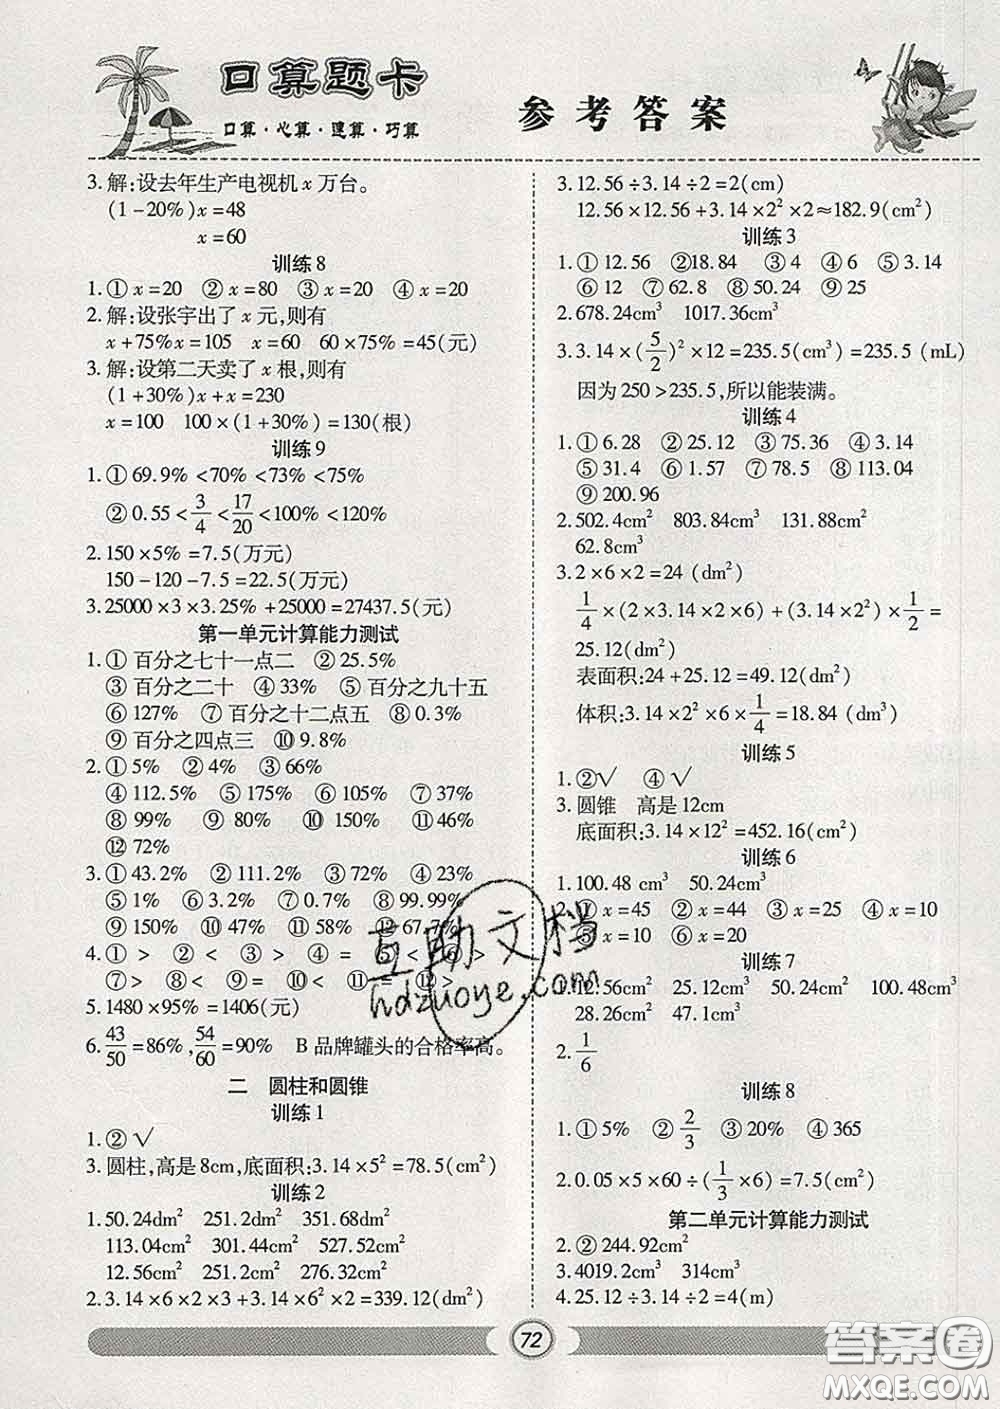 口算题卡
口算·心算·速算·巧算
参考答案
3.解:设去年生产电视机 x 万台。
(1-20%)x=48
x=60
训练8
1.① x=20 ② x=80 ③ x=20 ④ x=20
2.解:设张宇出了 x 元,则有
x+75%x=105 x=60 60×75%=45(元)
3.解:设第二天卖了 x 根,则有
(1+30%)x+x=230
x=100 100×(1+30%)=130(根)
训练9
1.① 69.9%<70%<73%<75%
② 0.55<3/4<17/20<100%<120%
2.150×5%=7.5(万元)
150-120-7.5=22.5(万元)
3.25000×3×3.25%+25000=27437.5(元)
第一单元计算能力测试
1.① 百分之七十一点二 ② 25.5%
③ 百分之二十 ④ 33% ⑤ 百分之九十五
⑥ 127% ⑦ 百分之十二点五 ⑧ 0.3%
⑨ 百分之四点三 ⑩ 9.8%
2.① 5% ② 4% ③ 66%
④ 112.5% ⑤ 175% ⑥ 105% ⑦ 37%
⑧ 99% ⑨ 80% ⑩ 150% ⑪ 46%
⑫ 72%
3.① 43.2% ② 111.2% ③ 72% ④ 23%
⑤ 1% ⑥ 3.2% ⑦ 0.1% ⑧ 99.99%
⑨ 150% ⑩ 47% ⑪ 58% ⑫ 67.7%
4.① > ② < ③ > ④ = ⑤ < ⑥ <
⑦ > ⑧ = ⑨ < ⑩ = ⑪ = ⑫ >
5.1480×95%=1406(元)
6.43/50=86%,54/60=90% B 品牌罐头的合格率高。
二 圆柱和圆锥
训练1
1.② √
3.圆柱,高是8cm,底面积:3.14×5²=78.5(cm²)
训练2
1.50.24dm² 251.2dm² 351.68dm²
113.04cm² 301.44cm² 527.52cm²
12.56cm² 251.2cm² 276.32cm²
2.3.14×6×2×3+3.14×6²×2=339.12(dm²)
3.12.56÷3.14÷2=2(cm)
12.56×12.56+3.14×2²×2≈182.9(cm²)
训练3
1.① 12.56 ②18.84 ③ 4 ④ 6 ⑤ 3.14
⑥ 12 ⑦ 62.8 ⑧ 50.24 ⑨ 25
2.678.24cm³ 1017.36cm³
3.3.14×(5/2)²×12=235.5(cm³)=235.5 (mL)
因为250>235.5,所以能装满。
训练4
1.① 6.28 ② 25.12 ③ 75.36 ④ 3.14
⑤ 31.4 ⑥ 1.57 ⑦ 78.5 ⑧ 113.04
⑨ 200.96
2.502.4cm² 803.84cm³ 131.88cm²
62.8cm³
3.2×6×2=24 (dm²)
1/4×(2×3.14×2×6)+(3.14×2²)×1/2=
25.12(dm²)
表面积:24+25.12=49.12(dm²)
体积:3.14×2²×6×1/4=18.84 (dm³)
训练5
1.②√ ④ √
3.圆锥 高是12cm
底面积:3.14×12²=452.16(cm²)
训练6
1.100.48 cm³ 50.24cm³
2.① x=45 ② x=44 ③ x=25 ④ x=10
⑤ x=10 ⑥ x=20
训练7
1.12.56cm³ 25.12cm³ 50.24cm³ 100.48cm³
28.26cm³ 47.1cm³
2.1/6
训练8
1.① 5% ② 2/3 ③ 20% ④ 365
2.0.05×5×60÷(1/3×6)=7.5(cm²)
第二单元计算能力测试
2.② 244.92cm²
3.4019.2cm³ 314cm³
4.25.12÷3.14÷2=4(m)
72
互助文档
hdzuoye.com
答案圈
MXQE.COM